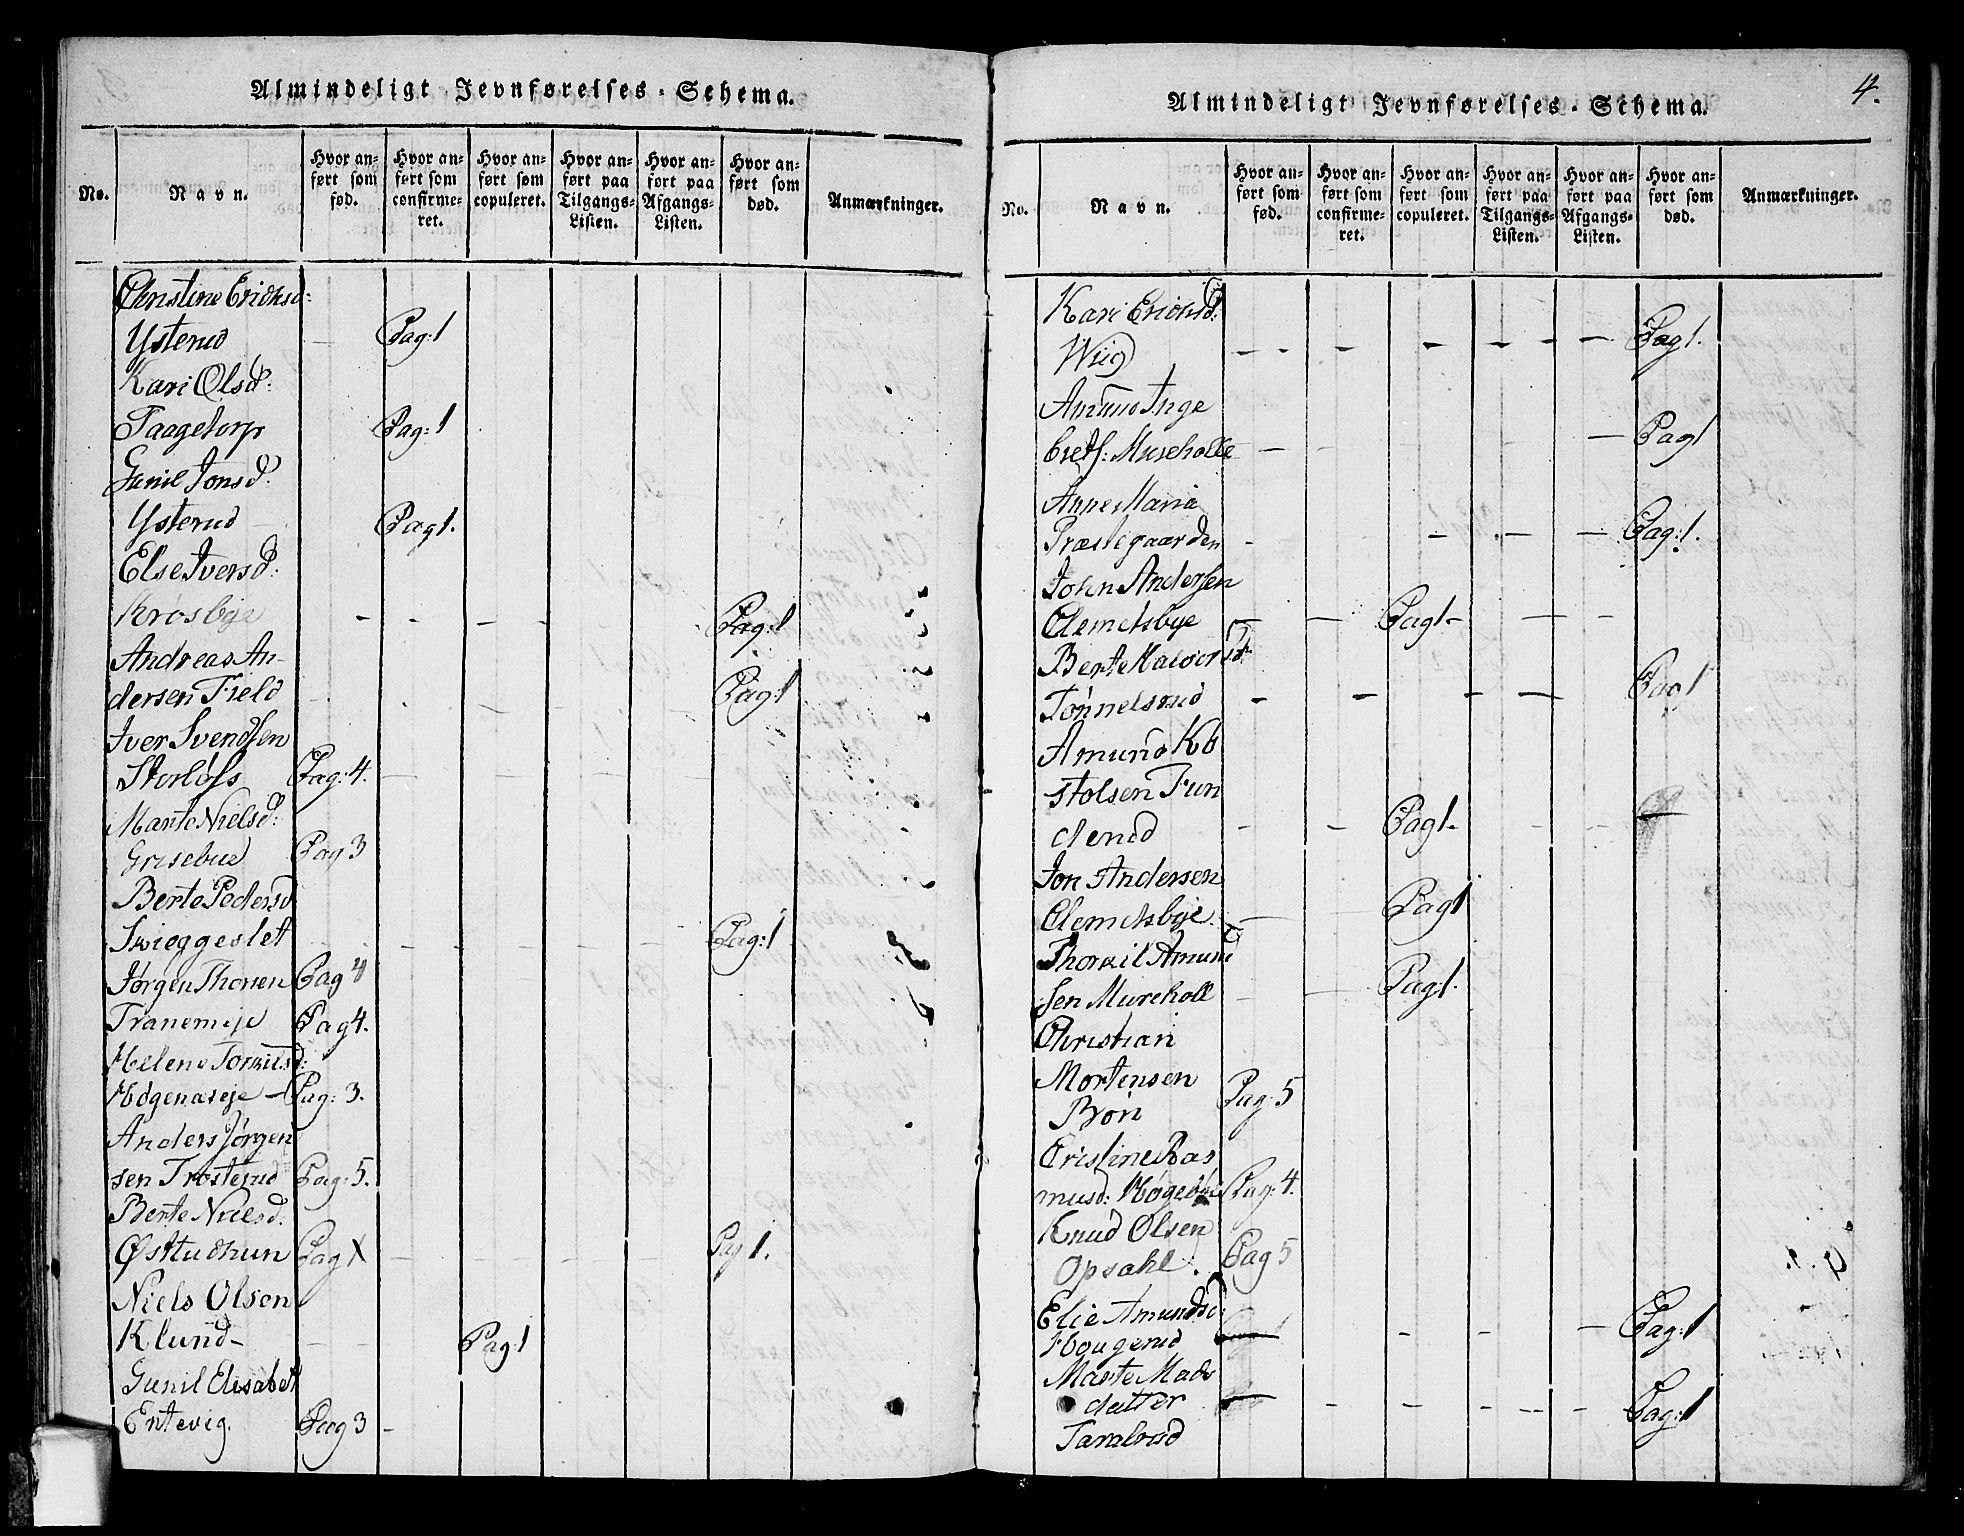 Almindeligt Jevnførelses-Schema.
No.
Navn.
Hvor an-
ført som
fød.
Hvor an-
ført som
confirme-
ret.
Hvor an-
ført som
copuleret.
Hvor an-
ført paa
Tilgangs-
Listen.
Hvor an-
ført paa
Afgangs-
Listen.
Hvor an-
ført som
død.
Anmærkninger.
Christine Erichsd:
Ysterud Pag:1
Kari Olsd:
Taagetorp Pag:1
Gunil Jonsd:
Ysterud Pag1.
Else Iversd:
Krosbye Pag:1
Andreas An-
dersen Field Pag:1
Iver Svendsen
Storløss Pag:4.
Marte Nielsd:
Grisebue Pag 3
Berte Pedersd
Swieggeslet Pag:1
Jørgen Thorsen Pag 4
Tranemeje Pag 4.
Helene Torkilsd:
Høgenaseje - Pag: 3.
Anders Jörgen
sen Trosterud Pag: 5.
Berte Nielsd.
Østtudhun Pag 1 Pag 1.
Niels Olsen
Klund- Pag1
Gunil Elisabet
Entevig. Pag 3
Almindeligt Jevnførelses-Schema.
4.
No.
Navn.
Hvor an-
ført som
fød.
Hvor an-
ført som
confirme-
ret.
Hvor an-
ført som
copuleret.
Hvor an-
ført paa
Tilgangs-
Listen.
Hvor an-
ført paa
Afgangs-
Listen.
Hvor an-
ført som
død.
Anmærkninger.
Kari Erichsd:
Wiig Pag 1.
Amund Inge
brets: Mureholle Pag 1
Anne Maria
Præstegaarden Pag: 1.
John Andersen
Clemetsbye Pag 1-
Berte Halvorsd:
Tönnelsrud Pag 1
Amund Ko
stolsen Frun
derud Pag 1.
Jon Andersen
Clemetsbye Pag 1
Thorkil Amund
sen Mureholl Pag 1.
Christian
Mortensen Pag: 5
Bön
Cristine Ras
musd: Høgebøe Pag: 4.
Knud Olsen
Opsahl. Pag 5
Elie Amundsd:
Hougerud Pag:1
Marte Mads
datter Pag:1
Taralrud